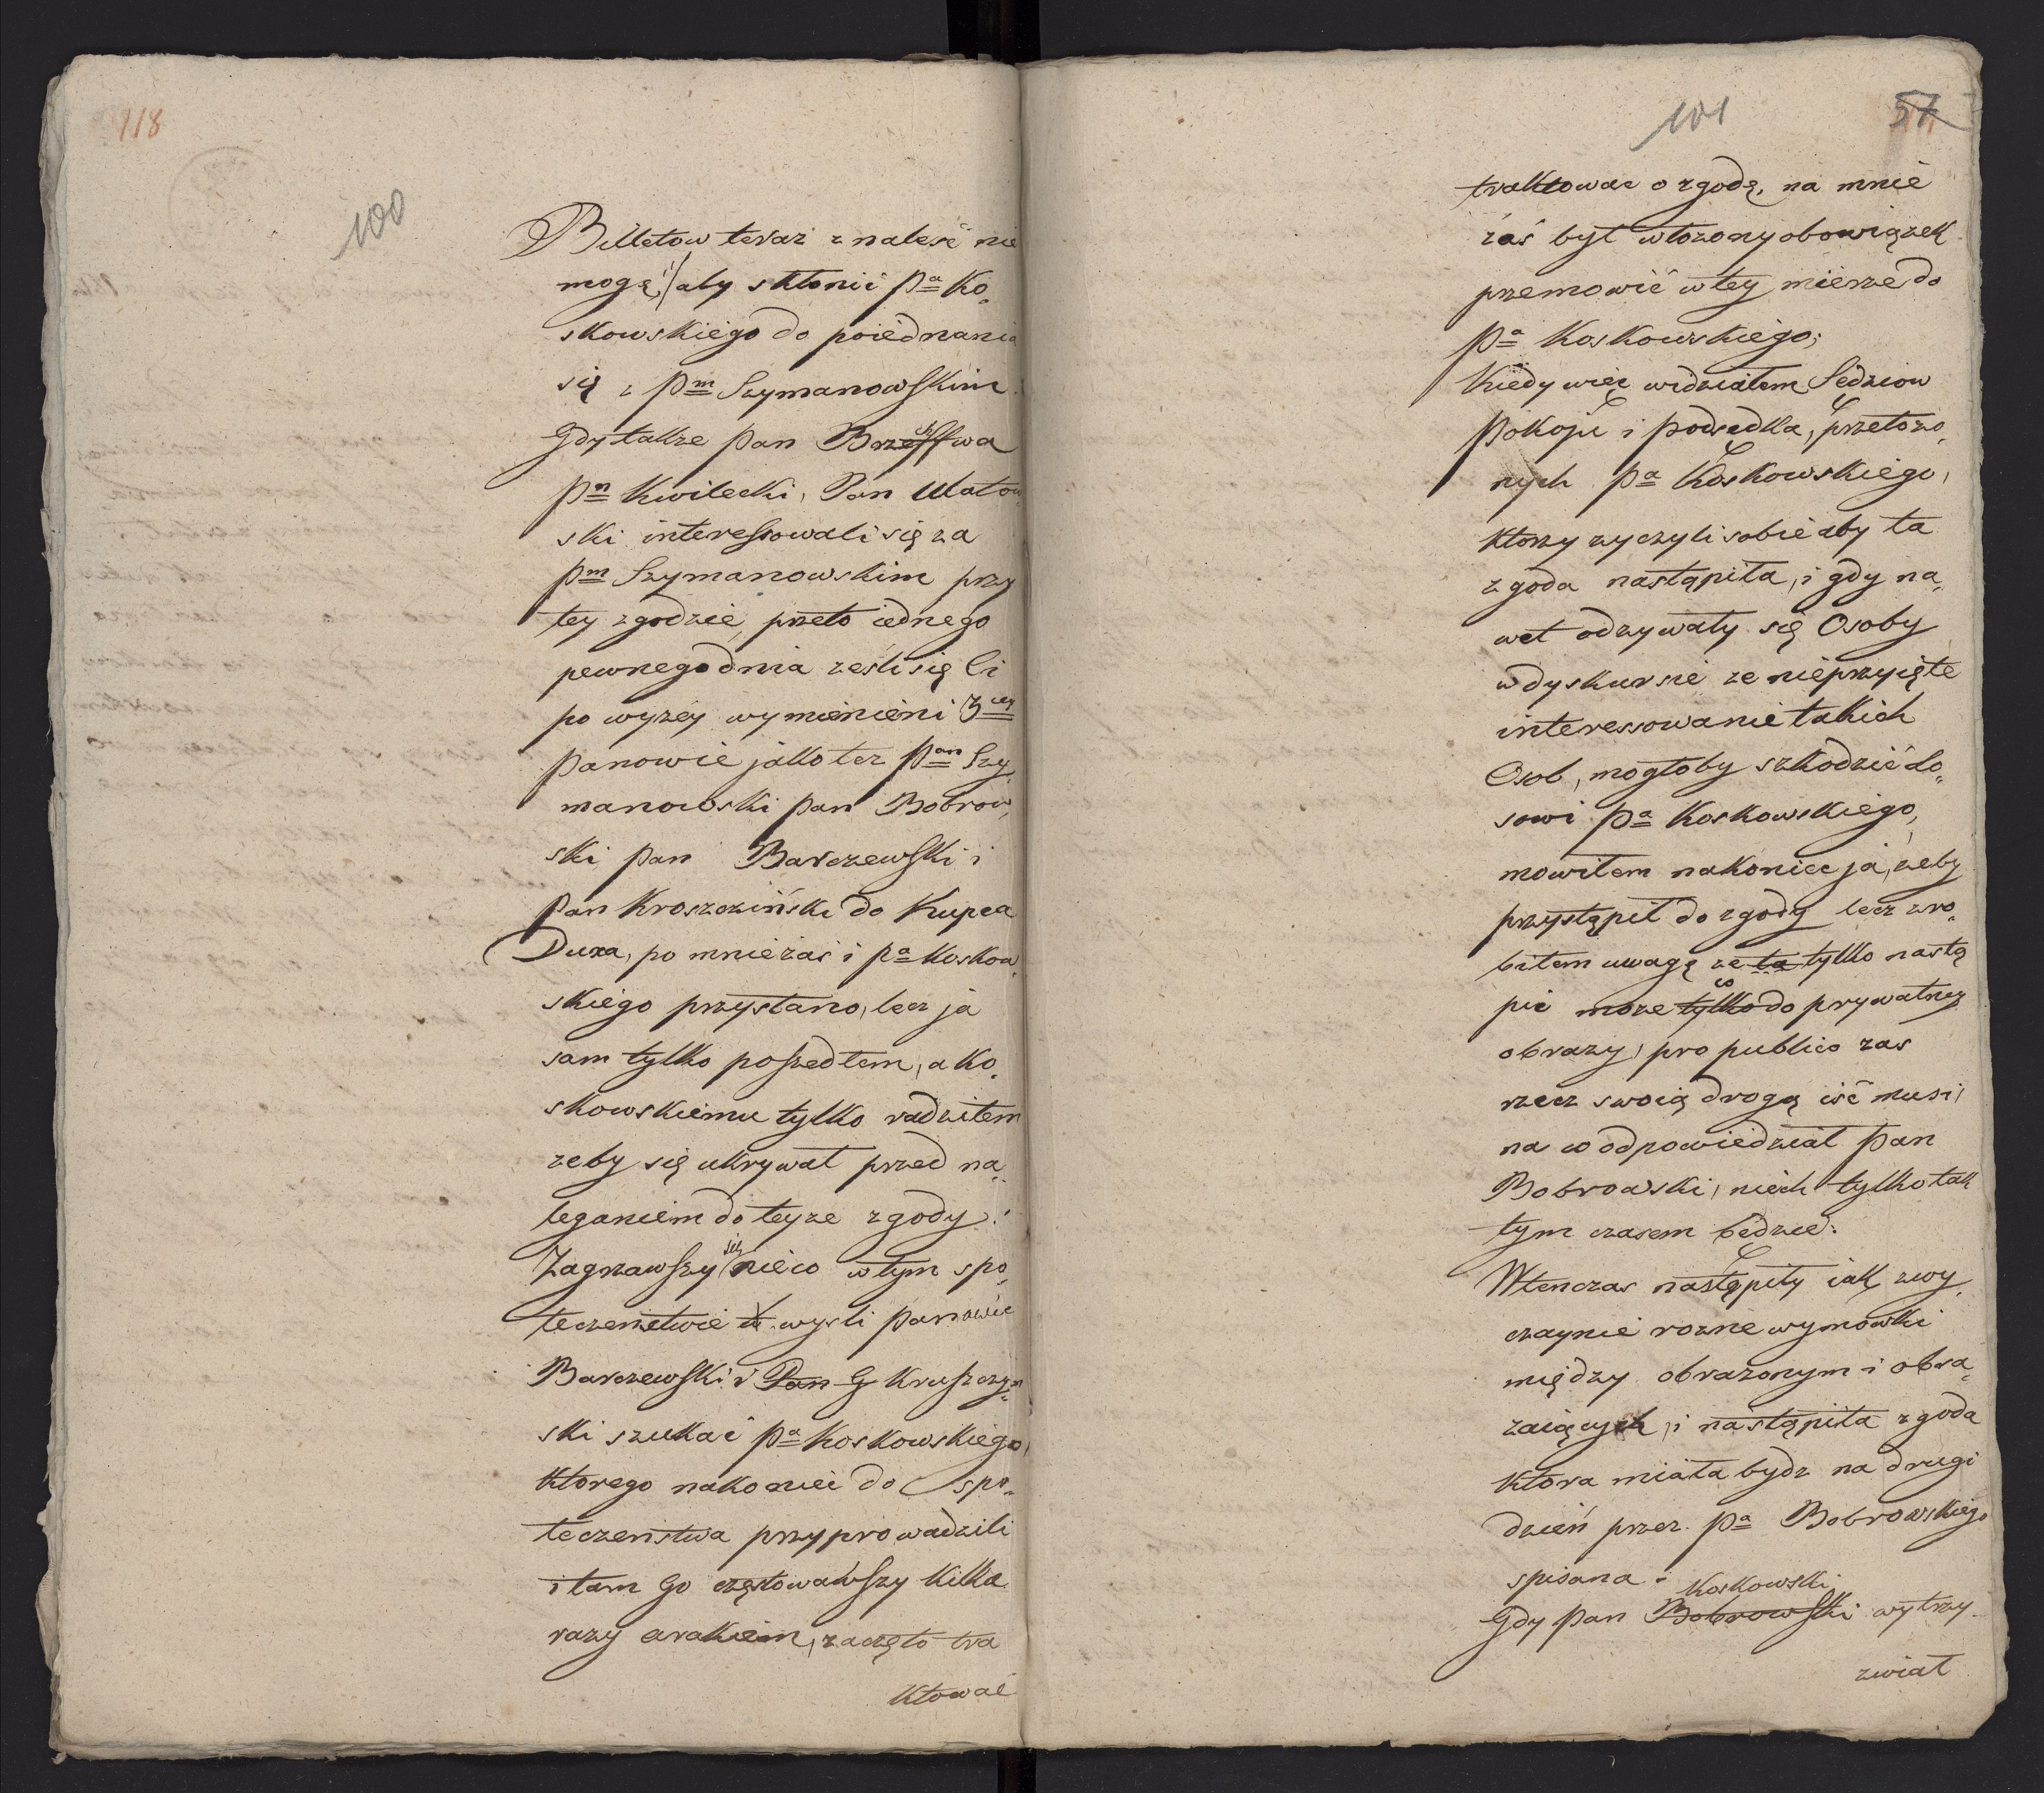 118
100
Billetow teraz znaleść nie
mogę, aby skłonić Pa Ko„
skowskiego do poiednania
się z Pm Szymanowskim
Gdy także Pan
Pn Kwilecki, Pan Ulatow
ski interessowali się za
Pm Szymanowskim przy
tey zgodzie, przeto iednego
pewnego dnia zeszli się Ci
po wyzey wymienieni 3ey
Panowie jako tez Pan Szy„
manowski Pan Bobrow„
ski Pan Barczewski i
Pan Kroszcziński do Kupca
Duxa, po mnie zaś i pa Koskow„
skiego przysłano, lecz ja
sam tylko poszedłem, a Ko„
skowskiemu tylko radziłem
zeby się ukrywał przed na„
leganiem do teyze zgody.
Zagrzawszy się nieco w tym spo„
łeczeństwie wyszli Panowie
Barczewski i Pan G Kruszczyń„
ski szukać Pa Koskowskiego,
ktorego nakoniec do spo„
łeczeństwa przyprowadzili
i tam Go częstowawszy kilka
razy arakiem, zaczęto tra
ktować
101
57
traktować o zgodę, na mnie
zaś był włozony obowiązek
przemowić w tey mierze do
Pa Koskowskiego;
Kiedy więc widziałem Sędziow
Pokoju i Podsędka, przełozo„
nych Pa Koskowskiego,
ktorzy zyczyli sobie aby ta
zgoda nastąpiła, i gdy na„
wet odzywały się Osoby
w dyskursie ze nieprzyięte
interessowanie takich
Osob, mogłoby szkodzić Lo„
sowi Pa Koskowskiego,
mowiłem nakoniec ja, zeby
przystąpił do zgody lecz zro„
biłem uwagę ze ta tylko nastą
pić moze tylko co do prywatney
obrazy, pro publico zas
rzecz swoią drogą iść musi,
na co odpowiedział Pan
Bobrowski, niech tylko tak
tym czasem będzie.
Wtenczas nastąpiły iak zwy„
czaynie rozne wymowki
między obrazonym i obra„
zaiących, i nastąpiła zgoda
ktora miała bydz na drugi
dzień przez Pa Bobrowskiego
spisana.
Koskowski
Gdy Pan Bobrowski wytrzy
zwiał